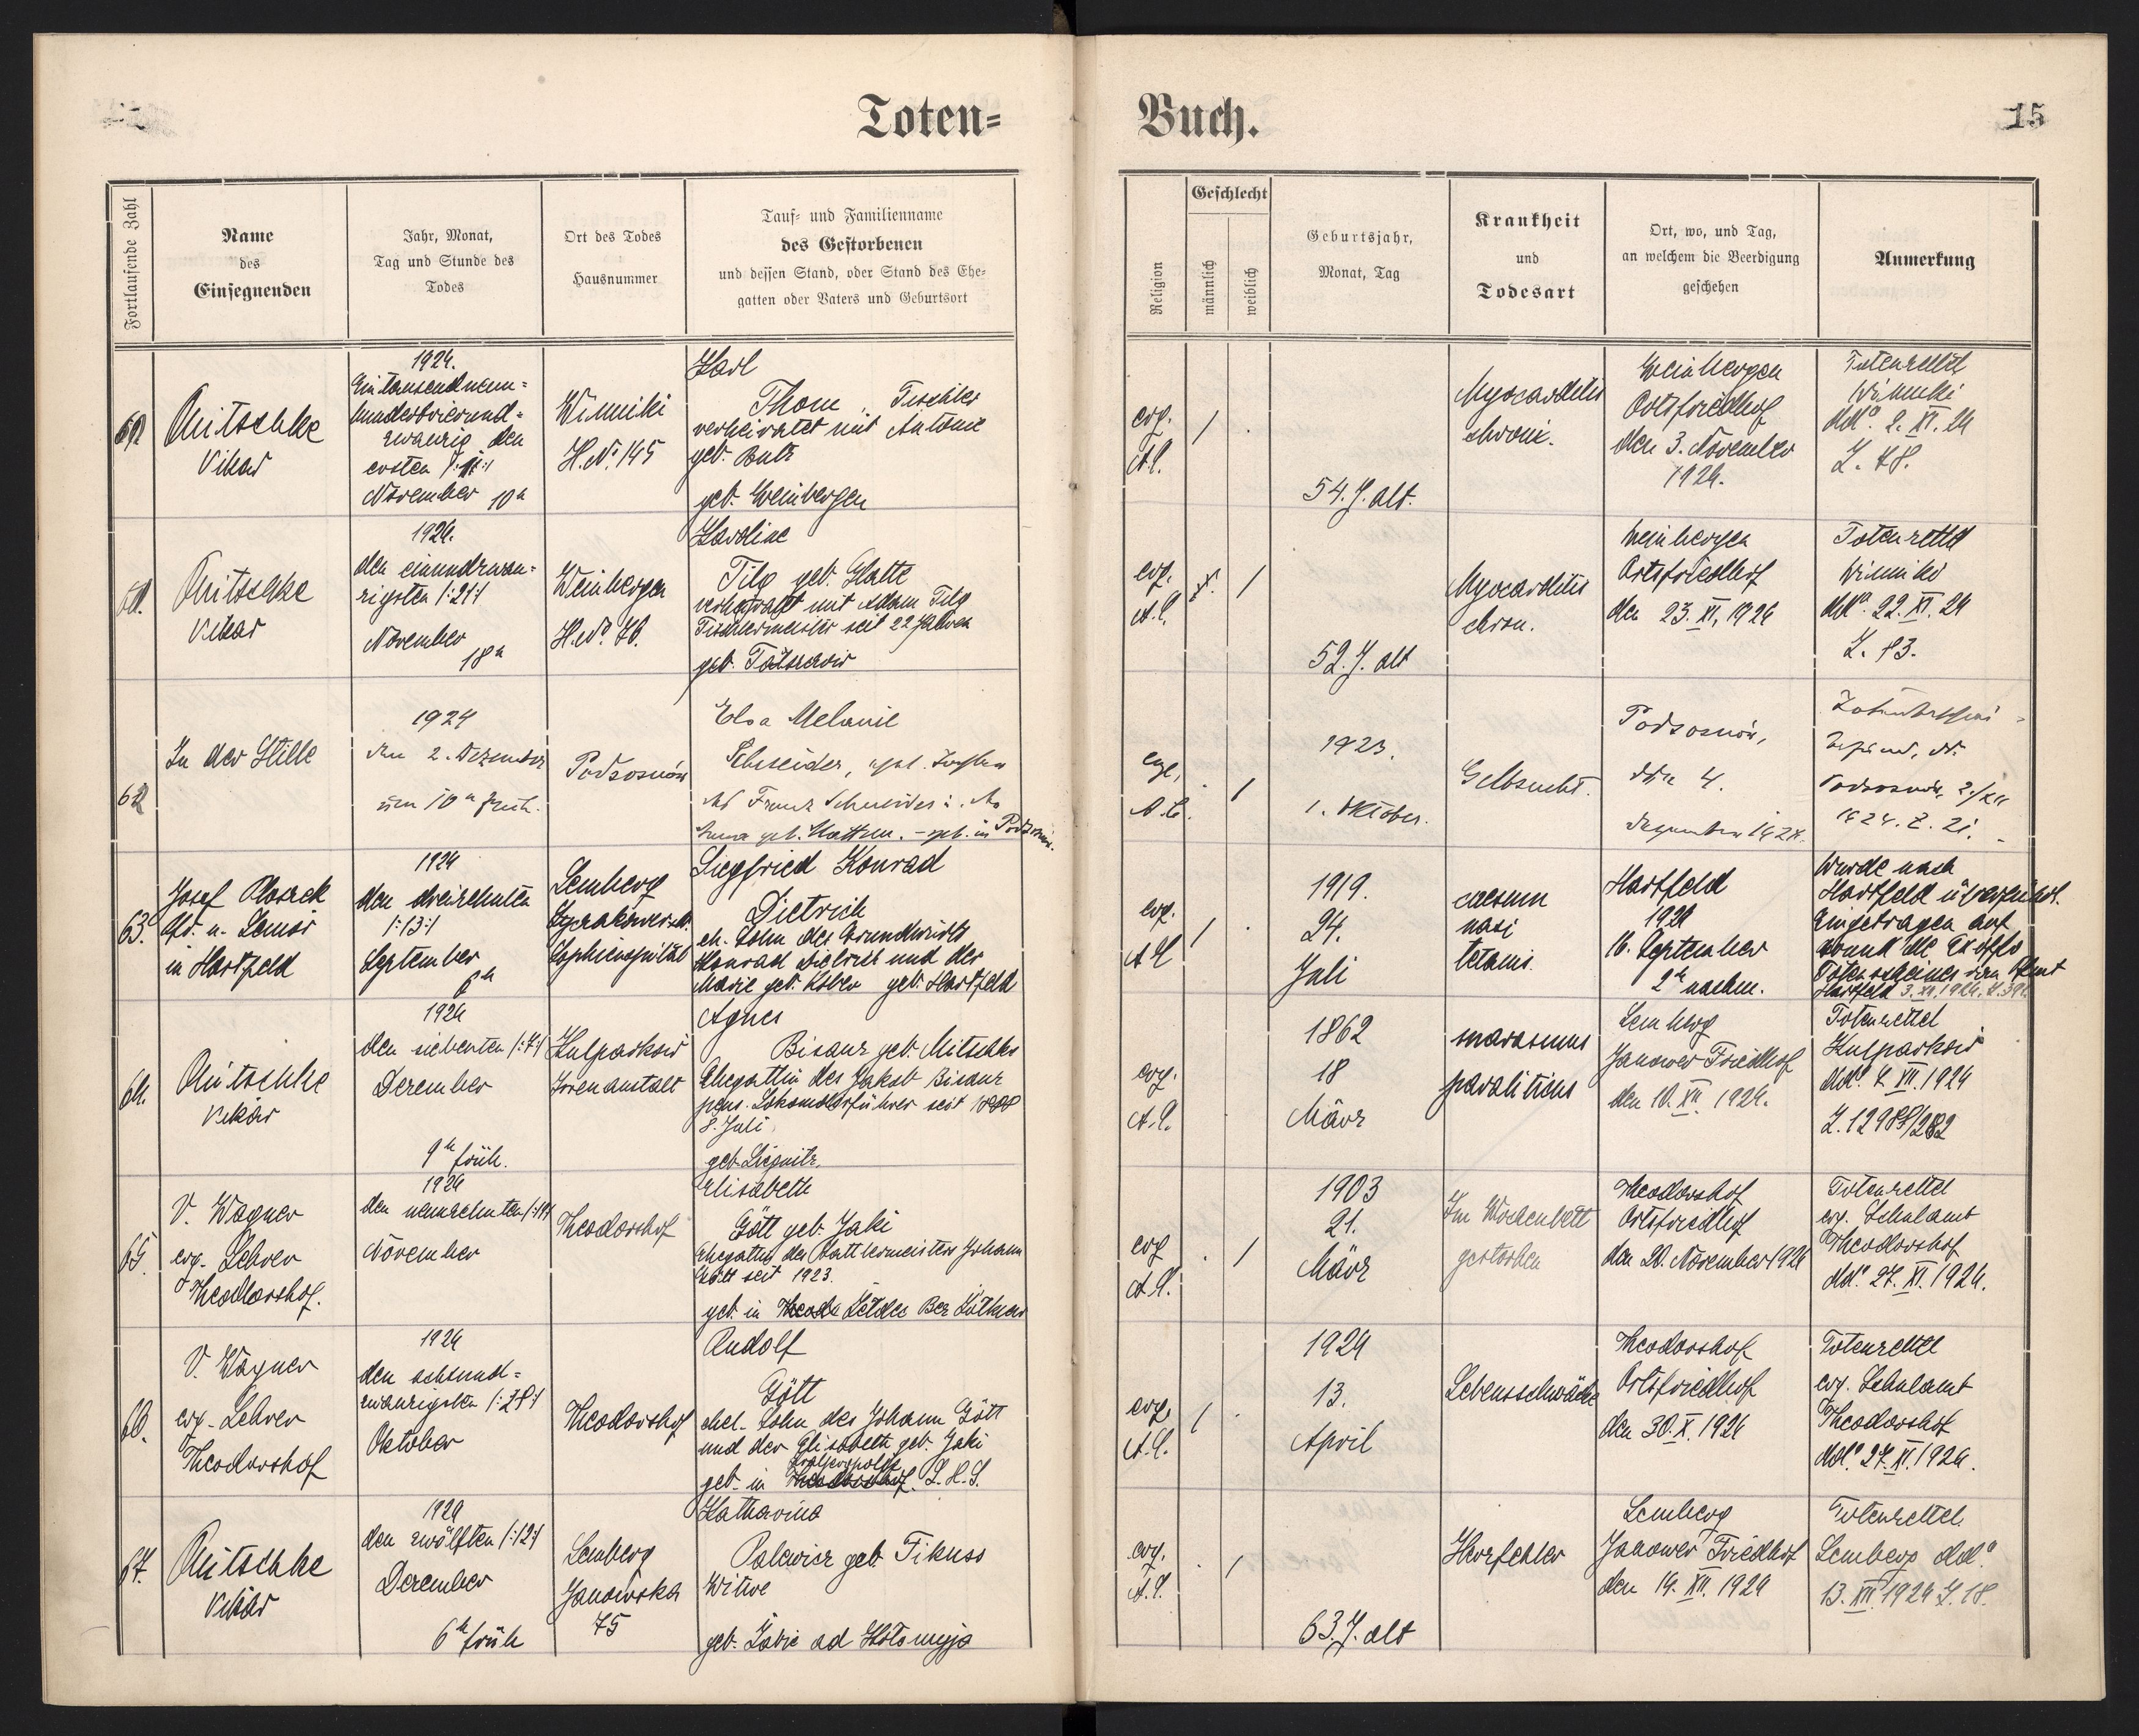 Toten=
Buch.
15
Fortlaufende Zahl
Name
des
Einsegnenden
Jahr, Monat,
Tag und Stunde des
Todes
Ort des Todes
Hausnummer
Tauf= und Familienname
des Gestorbenen
und dessen Stand, oder Stand des Ehe=
gatten oder Vaters und Geburtsort
Religion
Geschlecht
männlich
weiblich
Geburtsjahr,
Monat, Tag
Krankheit
und
Todesart
Ort, wo, und Tag,
an welchem die Beerdigung
geschehen
Anmerkung
Mitschke
Vikar
1924.
Eintausendneun=
hundertvierund=
zwanzig den
ersten
November 10h
Winniki
H. No. 145
Karl
Thom Tischler
verheiratet mit Antonie
geb. Butz
geb. Weinbergen
evg.
A.C.
/ .
54. J. alt.
Myocarditis
chronic.
Weinbergen
Ortsfriedhof
den 3. November
1924.
Totenzettel
Winniki
ddo. 2. XI. 24
Z. 78.
Mitschke
Vikar
1924.
den einundzwan=
zigsten /:21:/
November
18h
Weinbergen
H. No. 70.
Karoline
Tilg geb. Glatte
verheiratet mit Adam Tilg
Tischlermeister seit 22 Jahren
geb.
evg.
A.C.
/
52. J. alt
Myocarditis
chron.
Weinbergen
Ortsfriedhof
den 23. XI. 1924
Totenzettel
Winniki
ddo. 22. XI. 24
Z. 83.
62
In der Stille
1924
den 2. Dezember
um 10h früh.
Podsosnów
Elsa Melanie
Schneider, ehel. Tochter
des Franz Schneider u. der
geb. in Podsosnów.
evg.
A.C.
. /
1923.
1. Oktober.
Gelbsucht.
Podsosnów,
den 4.
Dezember 1924.
Podsosnów 2/XII
1924. Z. 21.
63.
Josef
Pfr. u. Senior
in Hartfeld
1924
den dreizehnten
/:13:/
September
6h
Lemberg
Sophienspital
Siegfried Konrad
Dietrich
eh. Sohn des Grundwirts
Konrad Dietrich und der
Marie geb. Kober geb. Hartfeld
evg.
A.C.
/ .
1919.
24.
Juli
nasi
tetanus.
Hartfeld
1924
16. September
2h nachm.
Wurde nach
Hartfeld überführt.
Eingetragen auf
Grund des Ex offo
Totenscheines vom Pfarramt
Hartfeld 3. XII. 1924.
64.
Mitschke
Vikar
1924
den siebenten /:7:/
Dezember
9h früh.
Kulparkow
Irrenanstalt
Agnes
Bisanz geb. Mitschke
Ehegattin des Jakob Bisanz
pens. Lokomotivführer seit
8. Juli
geb. Liegnitz.
evg.
A.C.
1862
18
März
marasmus
paraliticus
Lemberg
Janower Friedhof
den 10. XII. 1924.
Totenzettel
Kulparkow
ddo. 7. XII. 1924
65.
V. Wagner
evg. Lehrer
Theodorshof.
1924
den neunzehnten
November
Theodorshof
Elisabeth
Gött geb. Jaki
Ehegattin des Sattlermeisters Johann
Gött seit 1923.
geb. in
evg
A.C.
. /
1903
21.
März
Im Wochenbett
gestorben
Theodorshof
Ortsfriedhof
den 20. November 1924
Totenzettel
evg. Schulamt
Theodorshof
ddo. 27. XI. 1924.
66.
V. Wagner
evg. Lehrer
Theodorshof
1924
den achtund=
zwanzigsten /:28:/
Oktober
Theodorshof
Rudolf
Gött
ehel. Sohn des Johann Gött
und der Elisabeth geb. Jaki
geb. in
evg.
A.C.
/ .
1924
13.
April
Lebensschwäche
Theodorshof
Ortsfriedhof
den 30. X. 1924
Totenzettel
evg. Schulamt
Theodorshof
ddo. 27. XI. 1924.
67.
Mitschke
Vikar
1924
den zwölften /:12:/
Dezember
6h früh
Lemberg
Janowska
75
Katharina
Palewicz geb. Tikuss
Witwe
geb. Żabie ad Kołomyja
evg.
A.C.
. /
63. J. alt
Herzfehler
Lemberg
Janower Friedhof
den 14. XII. 1924
Totenzettel
Lemberg ddo.
13. XII. 1924 Z. 18.